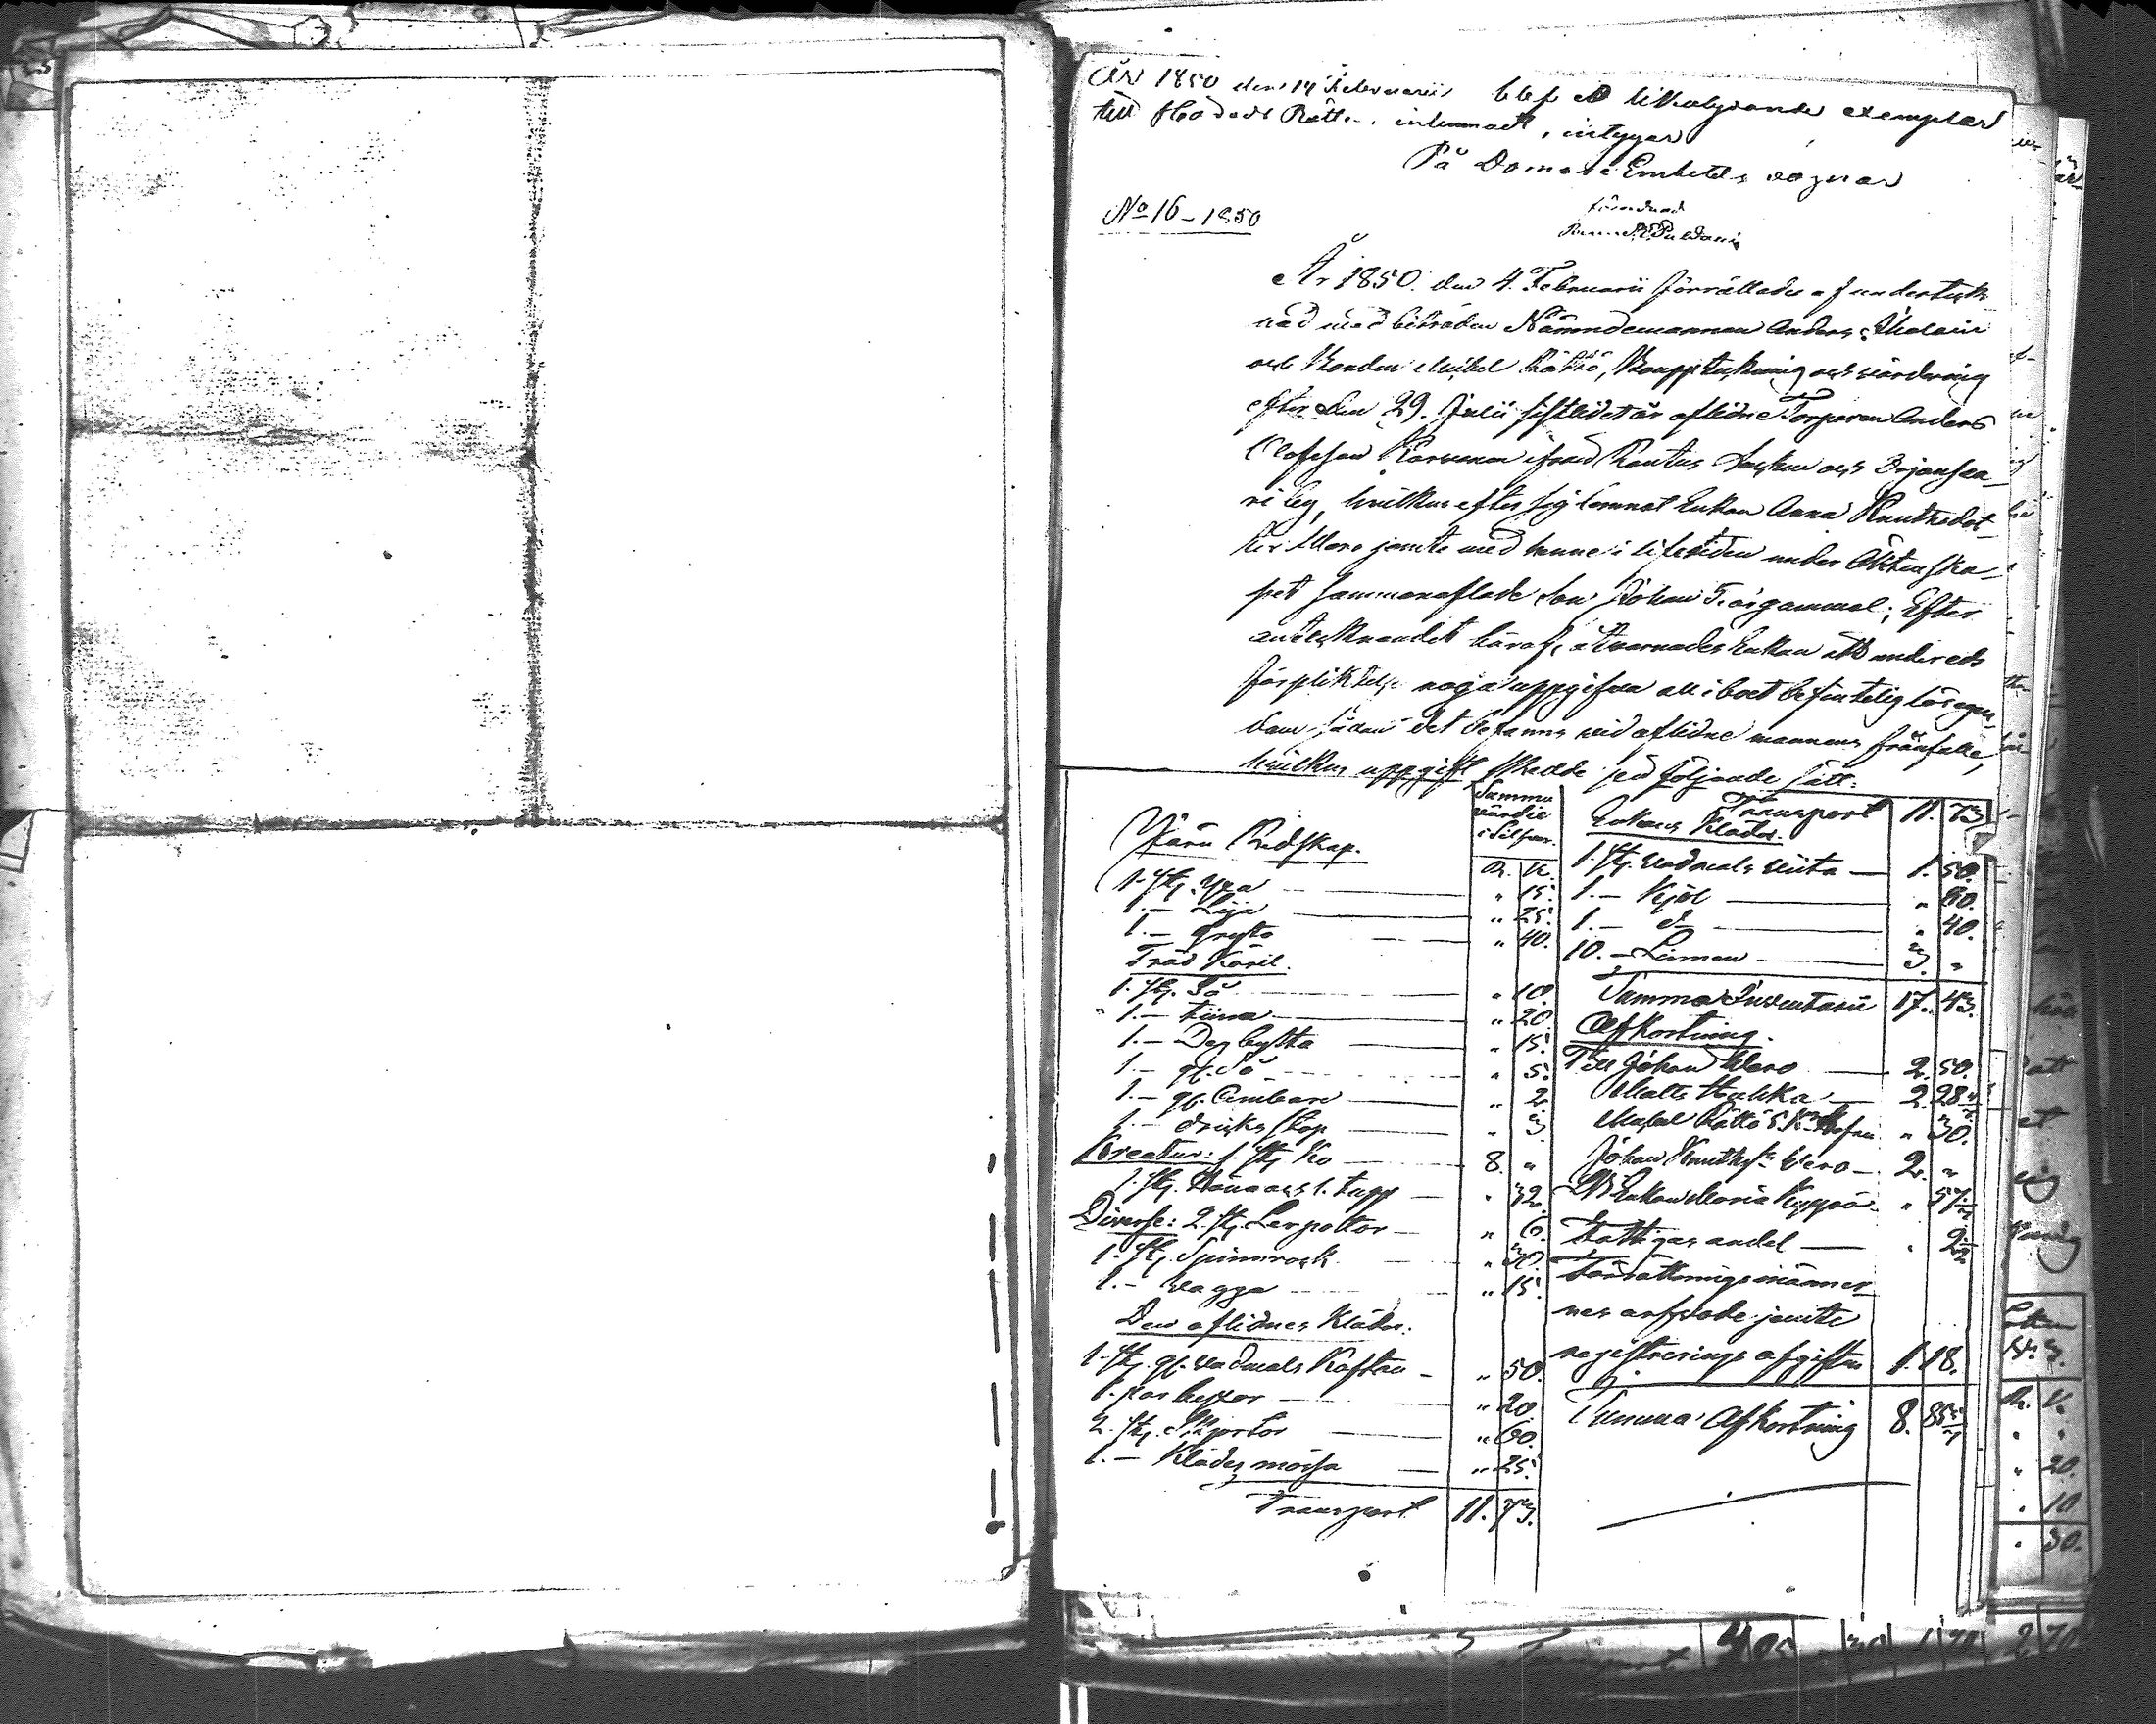 År 1850 den 14 Februarii blef ett likalydande exemplar
till Härads Rätten inlemnadt, intygar
På Domare Embetets vägnar
No 16 – 1850
År 1850. den 4. Februarii förrättades af underteck-
nad med biträden Nämndemannen Anders
och Bonden Mickel Rättö, Bouppteckning och värdering
efter den 29. Julii sistledet år aflidne Torparen Anders
Olofsson ifrån Rautus Socken och
ri by, hvilken efter sig lemnat Enkan Anna Knutsdot-
ter Wero jemte med henne i lifstiden under Äktenska-
pet sammanaflade Son Johan 5. år gammal; Efter
antecknandet häraf, åtvarnades Enkan att under eds
förpliktelse noga uppgifva all i boet befintelig lös egen-
dom sådan det befanns vid aflidne mannens frånfälle,
hvilken uppgift skedde på följande sätt:
Summa
värdie
i Silfver.
R. K.
Järn Redskap.
1. st. Yxa — " 15.
1. — Lija — " 25.
1. — Gryta — " 40.
Träd Käril.
1. st. Så — " 10.
1. — tiina — " 20.
1. — Degbytta — " 15.
1. — gl. Så — " 5.
1. — gl. Ämbare — " 2
1. — dricks stop — " 3
Kreatur: 1. st. Ko — 8. "
1. st. Höna och 1. tupp — " 32.
Diverse: 2. st. Lerpottor — " 6.
1. st. Spinnrock — " 30.
1. — vagga — " 15.
Den aflidnes Kläder:
1. st. gl. vadmals Kaftan — " 50.
1. par byxor — " 20
2. st. Skjortor — " 60.
1. — Klädes mössa — " 25.
Transport 11. 73.
Transport 11. 73
Enkans Kläder.
1. st. vadmals viita — 1. 50.
1. — Kjol — " 80.
1. — do — " 40.
10. — Linnen — 3. "
Summa Inventarii 17. 43.
Afkortning.
Till Johan Wero — 2. 50.
Matts Hukka — 2. 28
Mickel Rättö " 30.
Johan Wero — 2. "
Enkan Maria — " 57
Fattigas andel — " 2
Förrättningsmänner-
nes arfvode jemte
registrerings afgiften 1. 18.
Summa Afkortning 8. 85